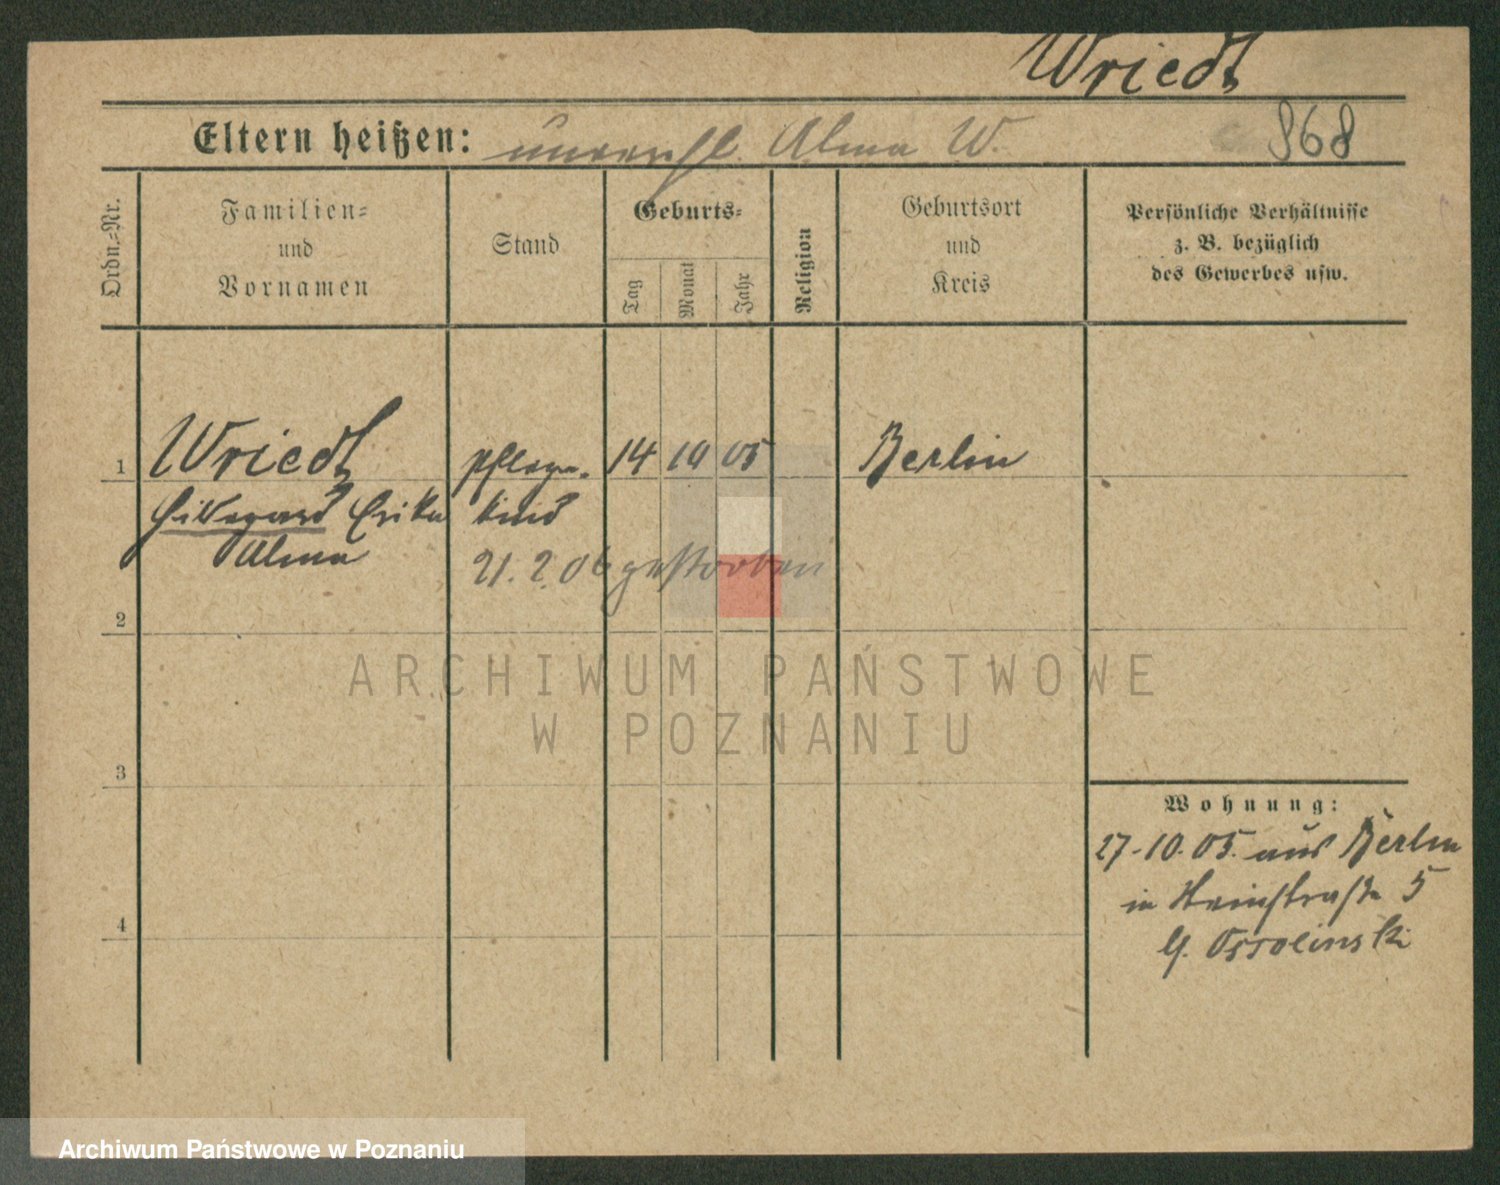 Wriedt
Eltern heißen: unverehl. Alma W. 868
Ordn.-Nr.
Familien-
und
Vornamen
Stand
Geburts-
Tag
Monat
Jahr
Religion
Geburtsort
und
Kreis
Persönliche Verhältnisse
z. B. bezüglich
des Gewerbes usw.
1 Wriedt Pflege- 14 10 05 Berlin
Hildegard Erika kind
Alma 21.2.06 gestorben
2
3
4
Wohnung:
27-10-05. aus Berlin
in 5
Ossolinski
ARCHIWUM PAŃSTWOWE
W POZNANIU
Archiwum Państwowe w Poznaniu